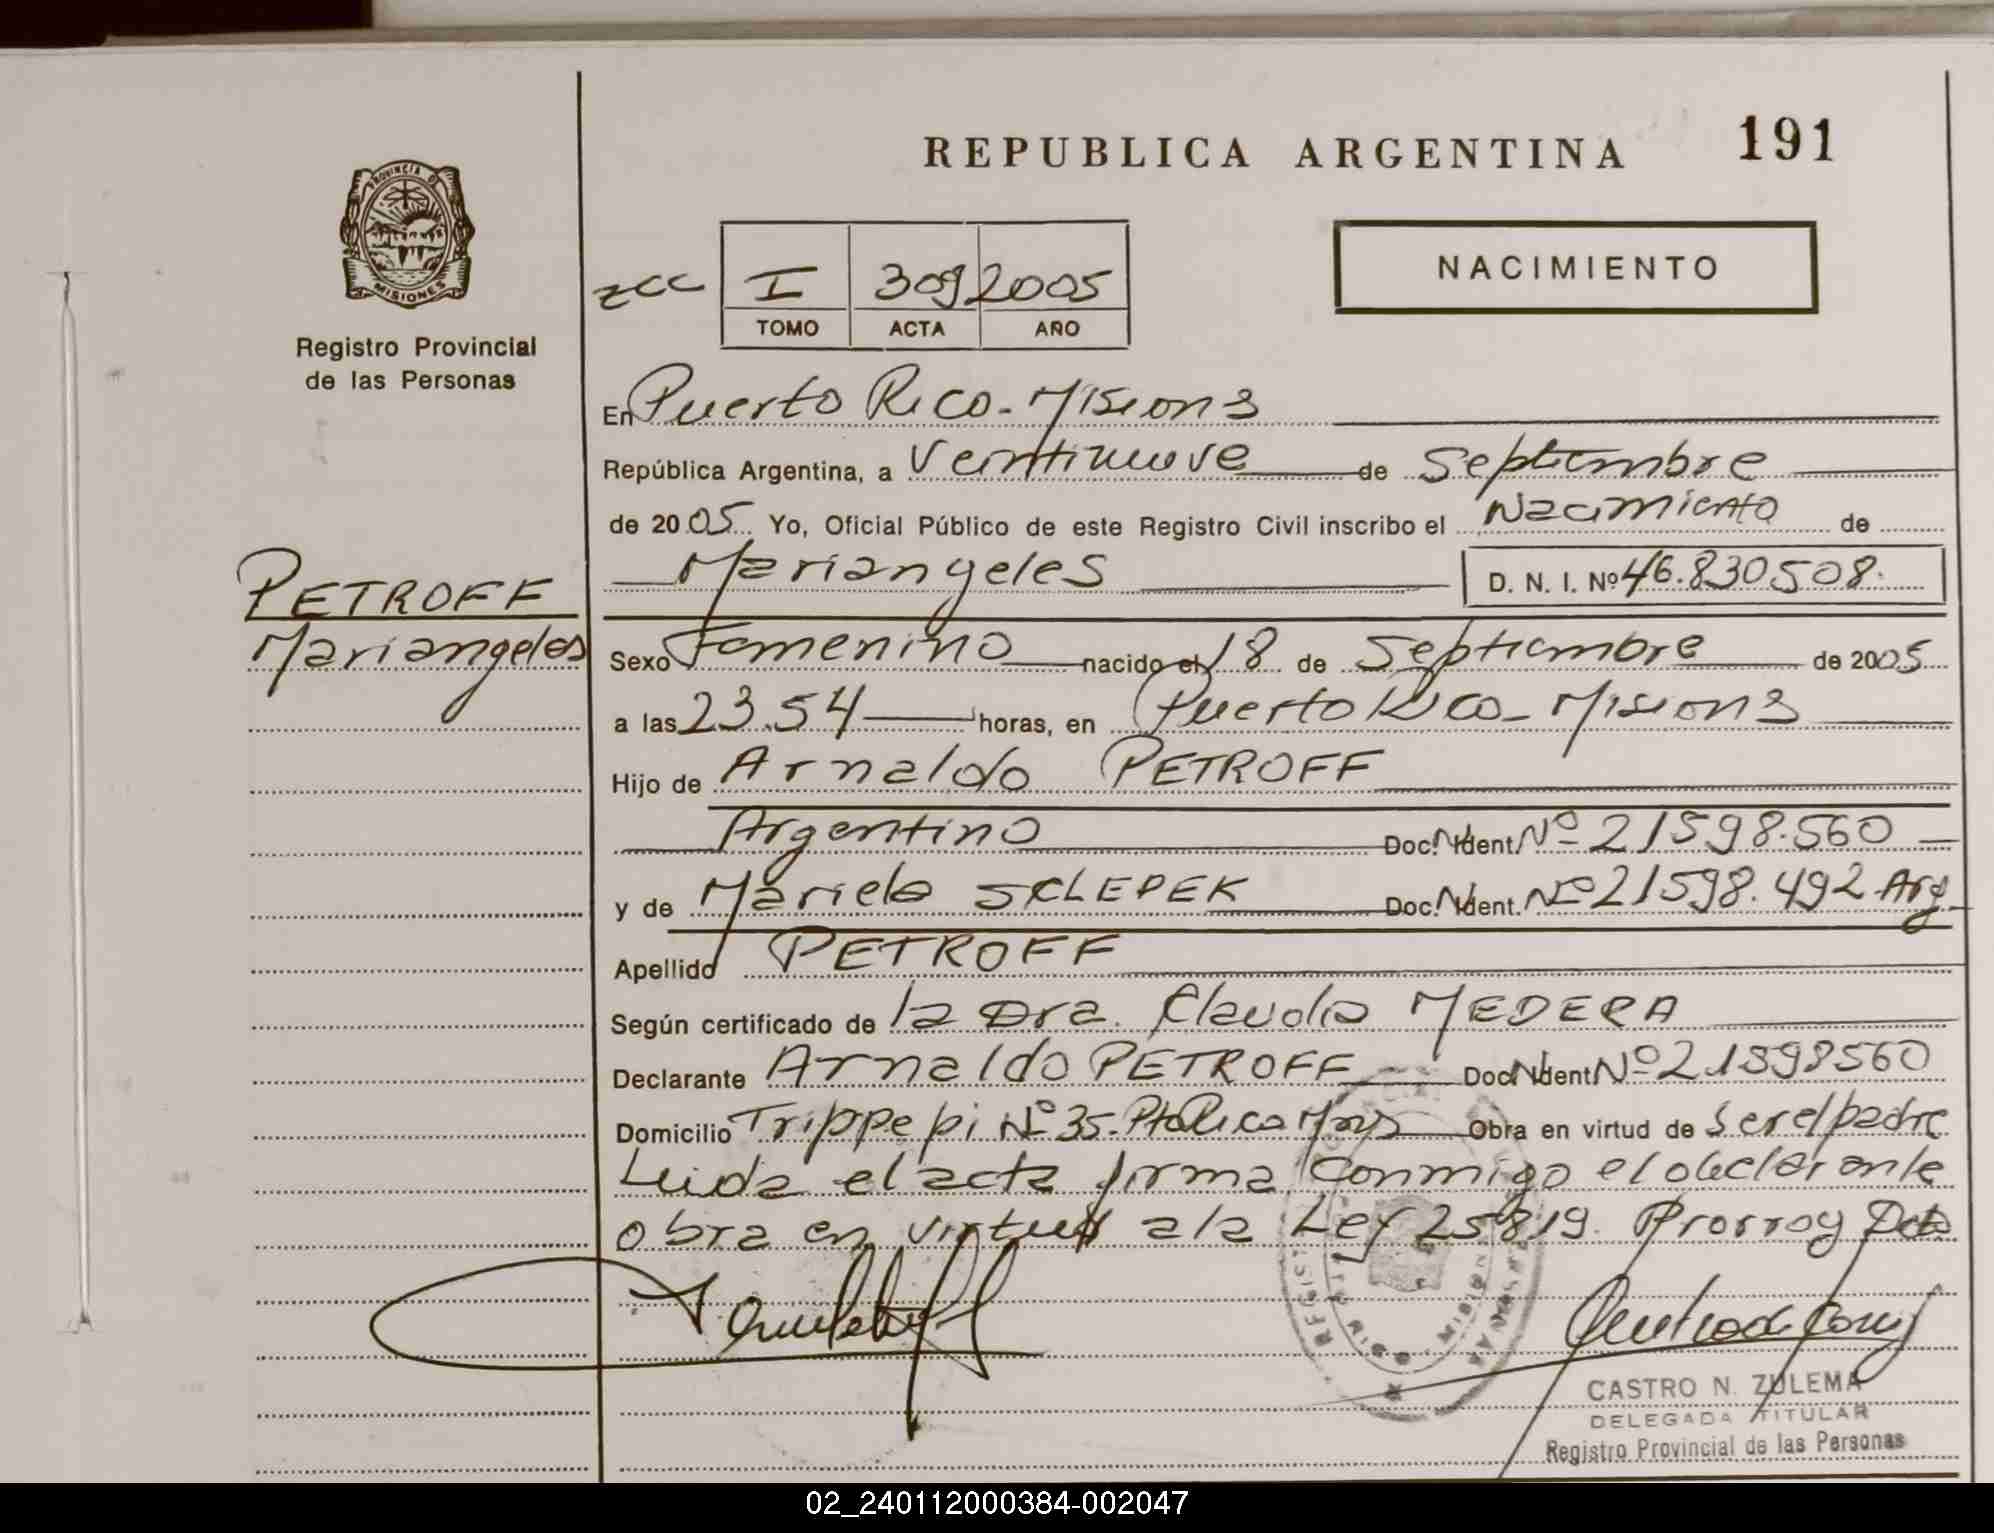 REPUBLICA ARGENTINA 191
PROVINCIA DE
MISIONES
Registro Provincial
de las Personas
NACIMIENTO
zcc I 309 2005
TOMO ACTA AÑO
En Puerto Rico - Misiones
República Argentina, a Veintinueve de Septiembre
de 2005 Yo, Oficial Público de este Registro Civil inscribo el Nacimiento de
Mariangeles D. N. I. Nº 46.830508.
PETROFF
Mariangeles
Sexo Femenino nacido el 18 de Septiembre de 2005
a las 23.54 horas, en Puerto Rico - Misiones
Hijo de Arnaldo PETROFF
Argentino Doc. Ident. Nº 21598.560
y de Mariela SKLEPEK Doc. Ident. Nº 21598.492 Arg
Apellido PETROFF
Según certificado de la Dra. Claudia MEDERA
Declarante Arnaldo PETROFF Doc. Ident Nº 21598560
Domicilio Trippepi Nº 35. Pto Rico Mnes Obra en virtud de ser el padre
Leida el acta firma conmigo el declarante
obra en virtud a la Ley 25819. Prorrog Dto
CASTRO N. ZULEMA
DELEGADA TITULAR
Registro Provincial de las Personas
02_240112000384-002047